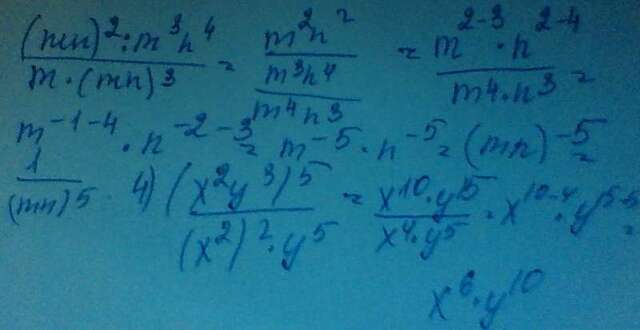 (mn)²:m³n⁴ / m·(mn)³ = m²n² / m³n⁴ / m⁴n³ = m²⁻³·n²⁻⁴ / m⁴·n³ =
m⁻¹⁻⁴·n⁻²⁻³ = m⁻⁵·n⁻⁵ = (mn)⁻⁵ =
1/(mn)5 4) (x²y³)5 / (x²)²·y⁵ = x¹⁰·y¹⁵ / x⁴·y⁵ = x¹⁰⁻⁴·y¹⁵⁻⁵ =
x⁶·y¹⁰